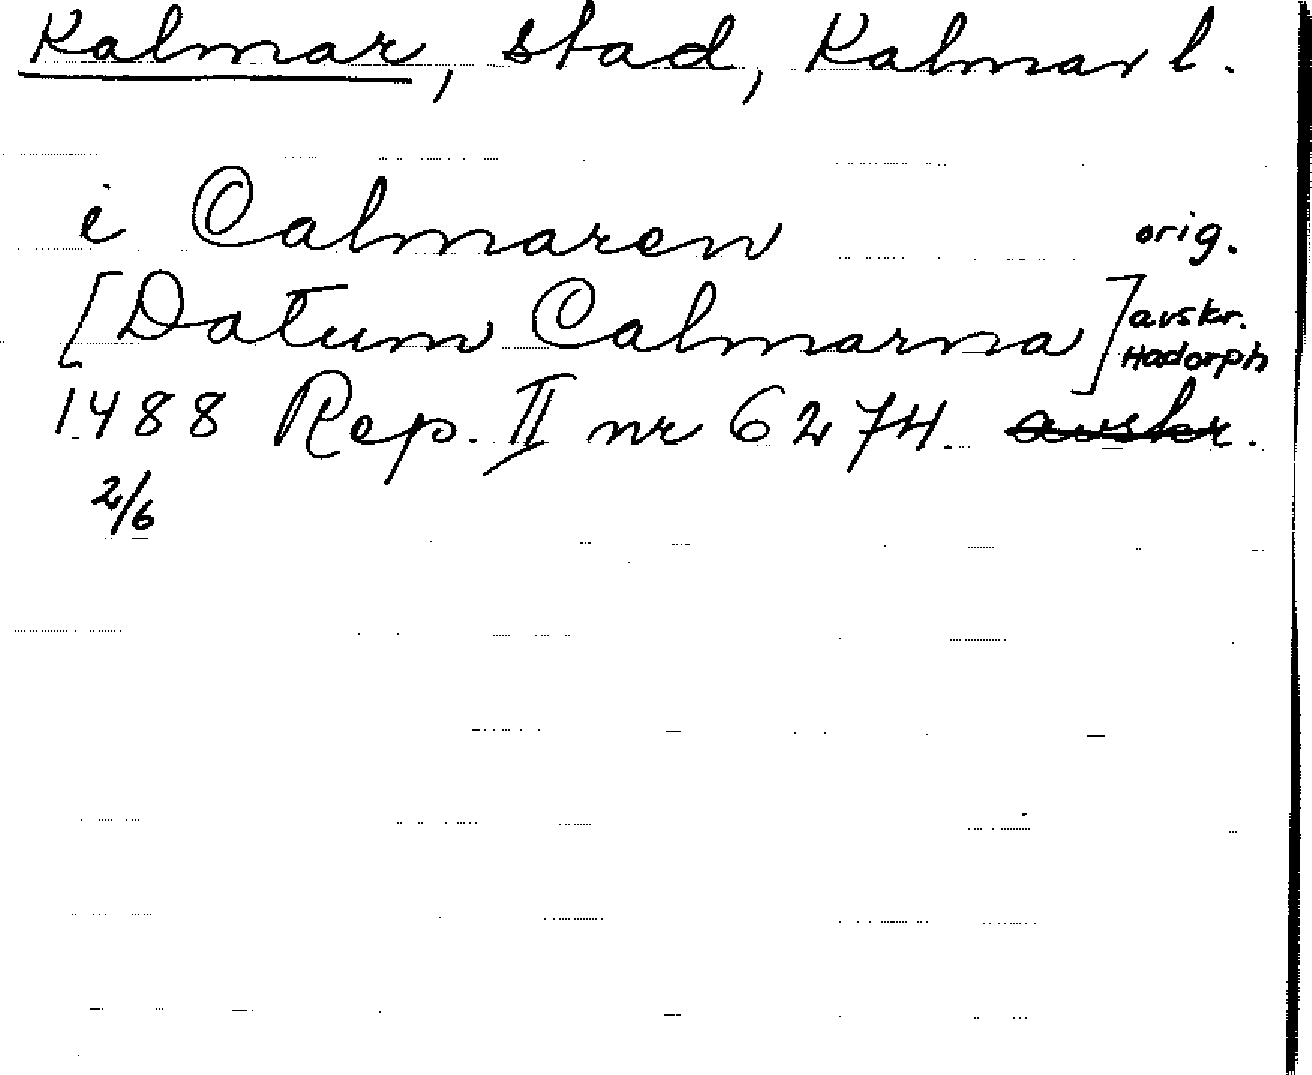 Kalmar, stad, Kalmar l.
i Calmaren orig.
[Datum Calmarna] avskr. Hadorph
1488 Rep. II nr 6274. avskr.
2/6